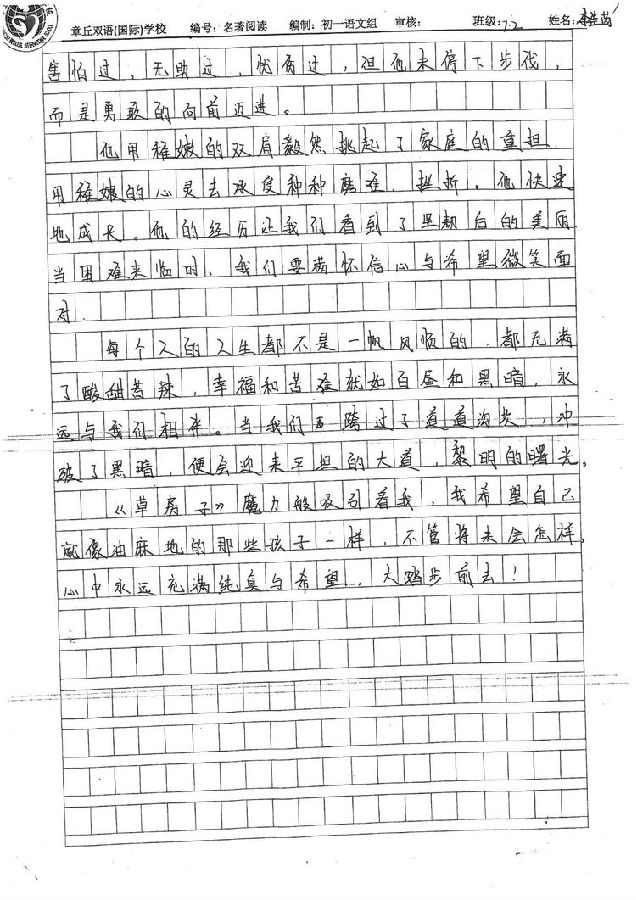 章丘双语(国际)学校 编号:名著阅读 编制:初一语文组 审核: 班级:7.2 姓名:李
害怕过,无助过,忧伤过,但他未停下步伐,
而是勇敢的向前迈进。
他用稚嫩的双肩毅然挑起了家庭的重担
用稚嫩的心灵去承受种种磨难、挫折。他快速
地成长。他的经历让我们看到了坚韧后的美丽
当困难来临时,我们要满怀信心与希望微笑面
对.
每个人的人生都不是一帆风顺的.都充满
了酸甜苦辣,幸福和苦难就如白昼和黑暗,永
远与我们相伴。当我们跨过了道道沟坎,冲
破了黑暗,便会迎来平坦的大道,黎明的曙光。
《草房子》魔力般吸引着我,我希望自己
就像油麻地的那些孩子一样,不管将来会怎样,
心中永远充满纯真与希望,大踏步前去!